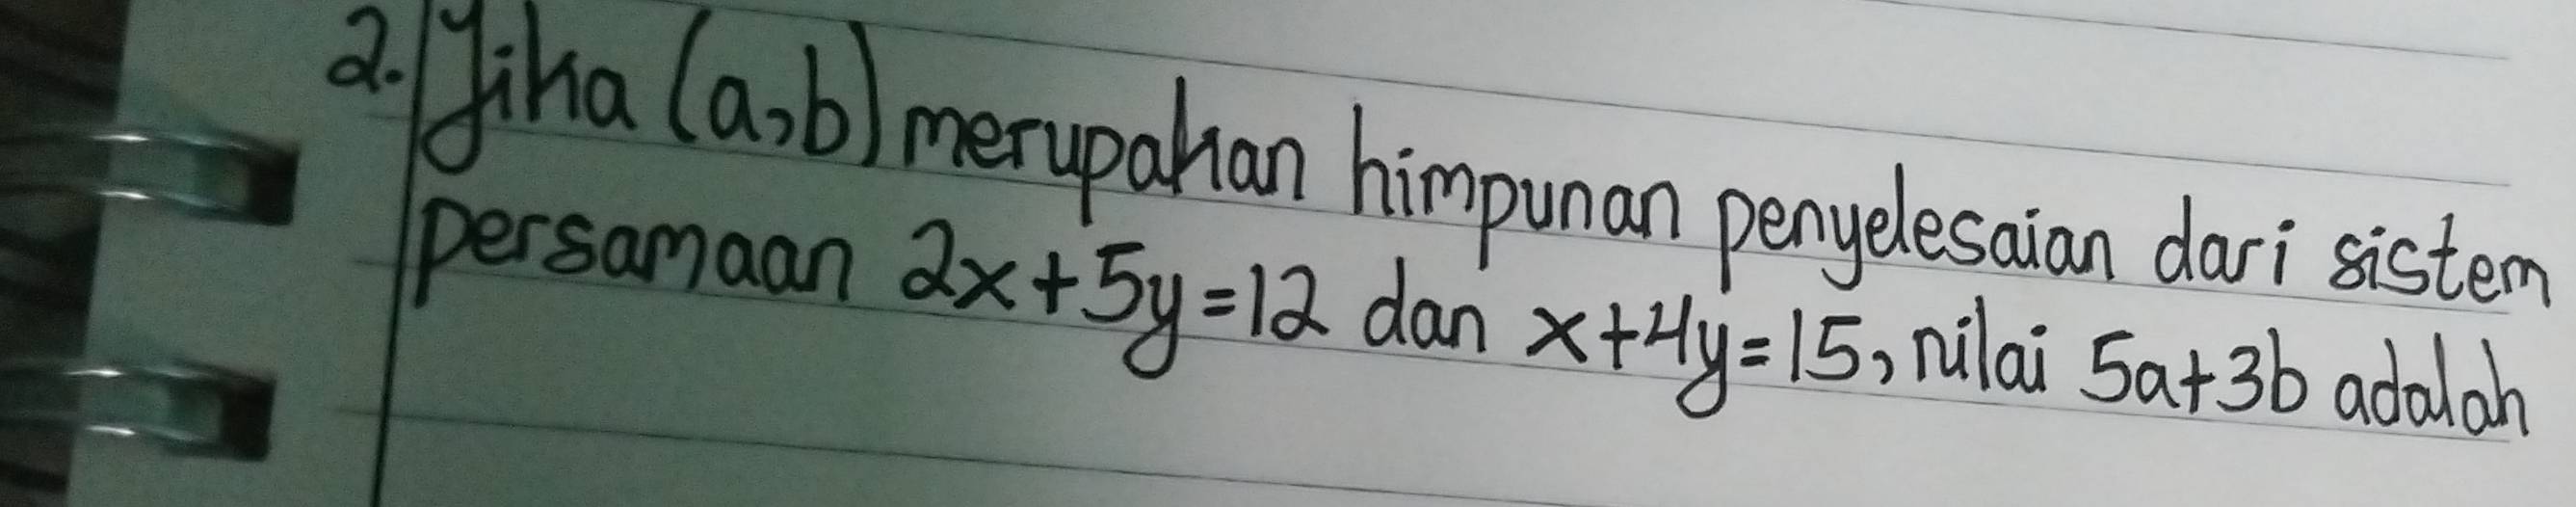 2. Jika (a,b) merupakan himpunan penyelesaian dari sistem
persamaan 2x+5y=12 dan x+4y=15, nilai 5a+3b adalah